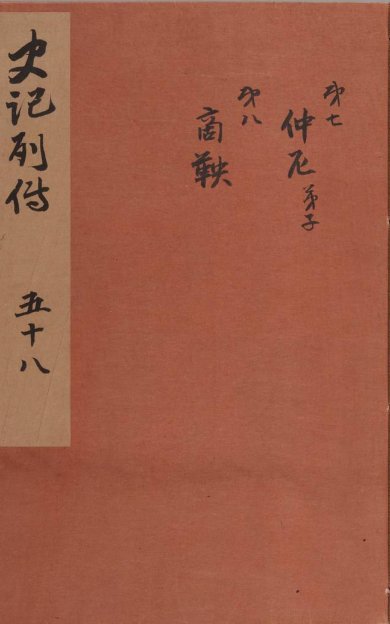 第七
仲尼弟子
第八
商鞅
史記列傳 五十八